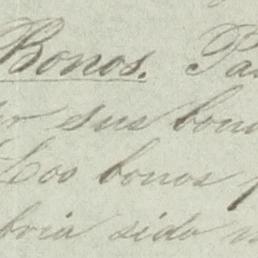 Bonos. Pa
sus bono
Los bonos
sido